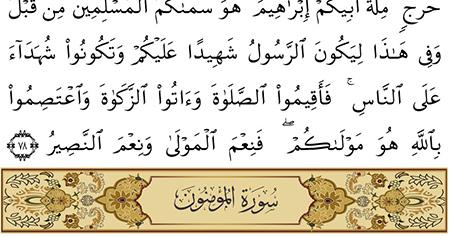 حَرَجٍ ۚ مِّلَّةَ أَبِيكُمْ إِبْرَٰهِيمَ ۚ هُوَ سَمَّىٰكُمُ ٱلْمُسْلِمِينَ مِن قَبْلُ
وَفِى هَـٰذَا لِيَكُونَ ٱلرَّسُولُ شَهِيدًا عَلَيْكُمْ وَتَكُونُوا۟ شُهَدَآءَ
عَلَى ٱلنَّاسِ ۚ فَأَقِيمُوا۟ ٱلصَّلَوٰةَ وَءَاتُوا۟ ٱلزَّكَوٰةَ وَٱعْتَصِمُوا۟
بِٱللَّهِ هُوَ مَوْلَىٰكُمْ ۖ فَنِعْمَ ٱلْمَوْلَىٰ وَنِعْمَ ٱلنَّصِيرُ ٧٨
سُورَةُ المُؤْمِنُونَ